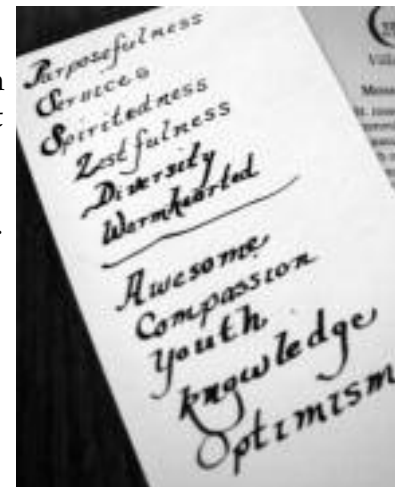 Purposefulness
Services
Spiritedness
Zestfulness
Diversity
Warmhearted
Awesome
Compassion
Youth
Knowledge
Optimism